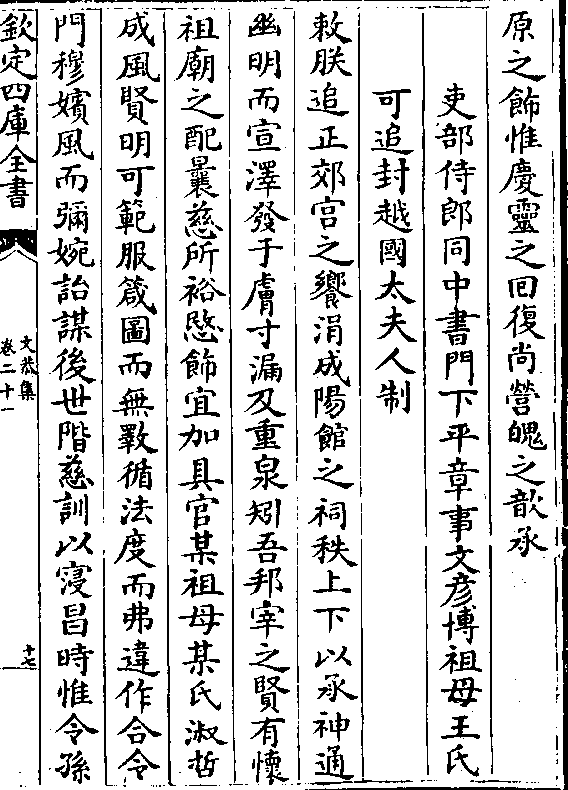 原之飾惟慶靈之回復尚營魄之歆承
吏部侍郎同中書門下平章事文彦博祖母王氏
可追封越國太夫人制
敕朕追正郊宫之饗涓成陽館之祠秩上下以承神通
幽明而宣澤發于膚寸漏及重泉矧吾邦宰之賢有懷
祖廟之配曩慈所裕愍飾宜加具官某祖母某氏淑哲
成風賢明可範服箴圖而無斁循法度而弗違作合令
門穆嬪風而彌婉詒謀後世階慈訓以寖昌時惟令孫
欽定四庫全書
文恭集
卷二十一
十七